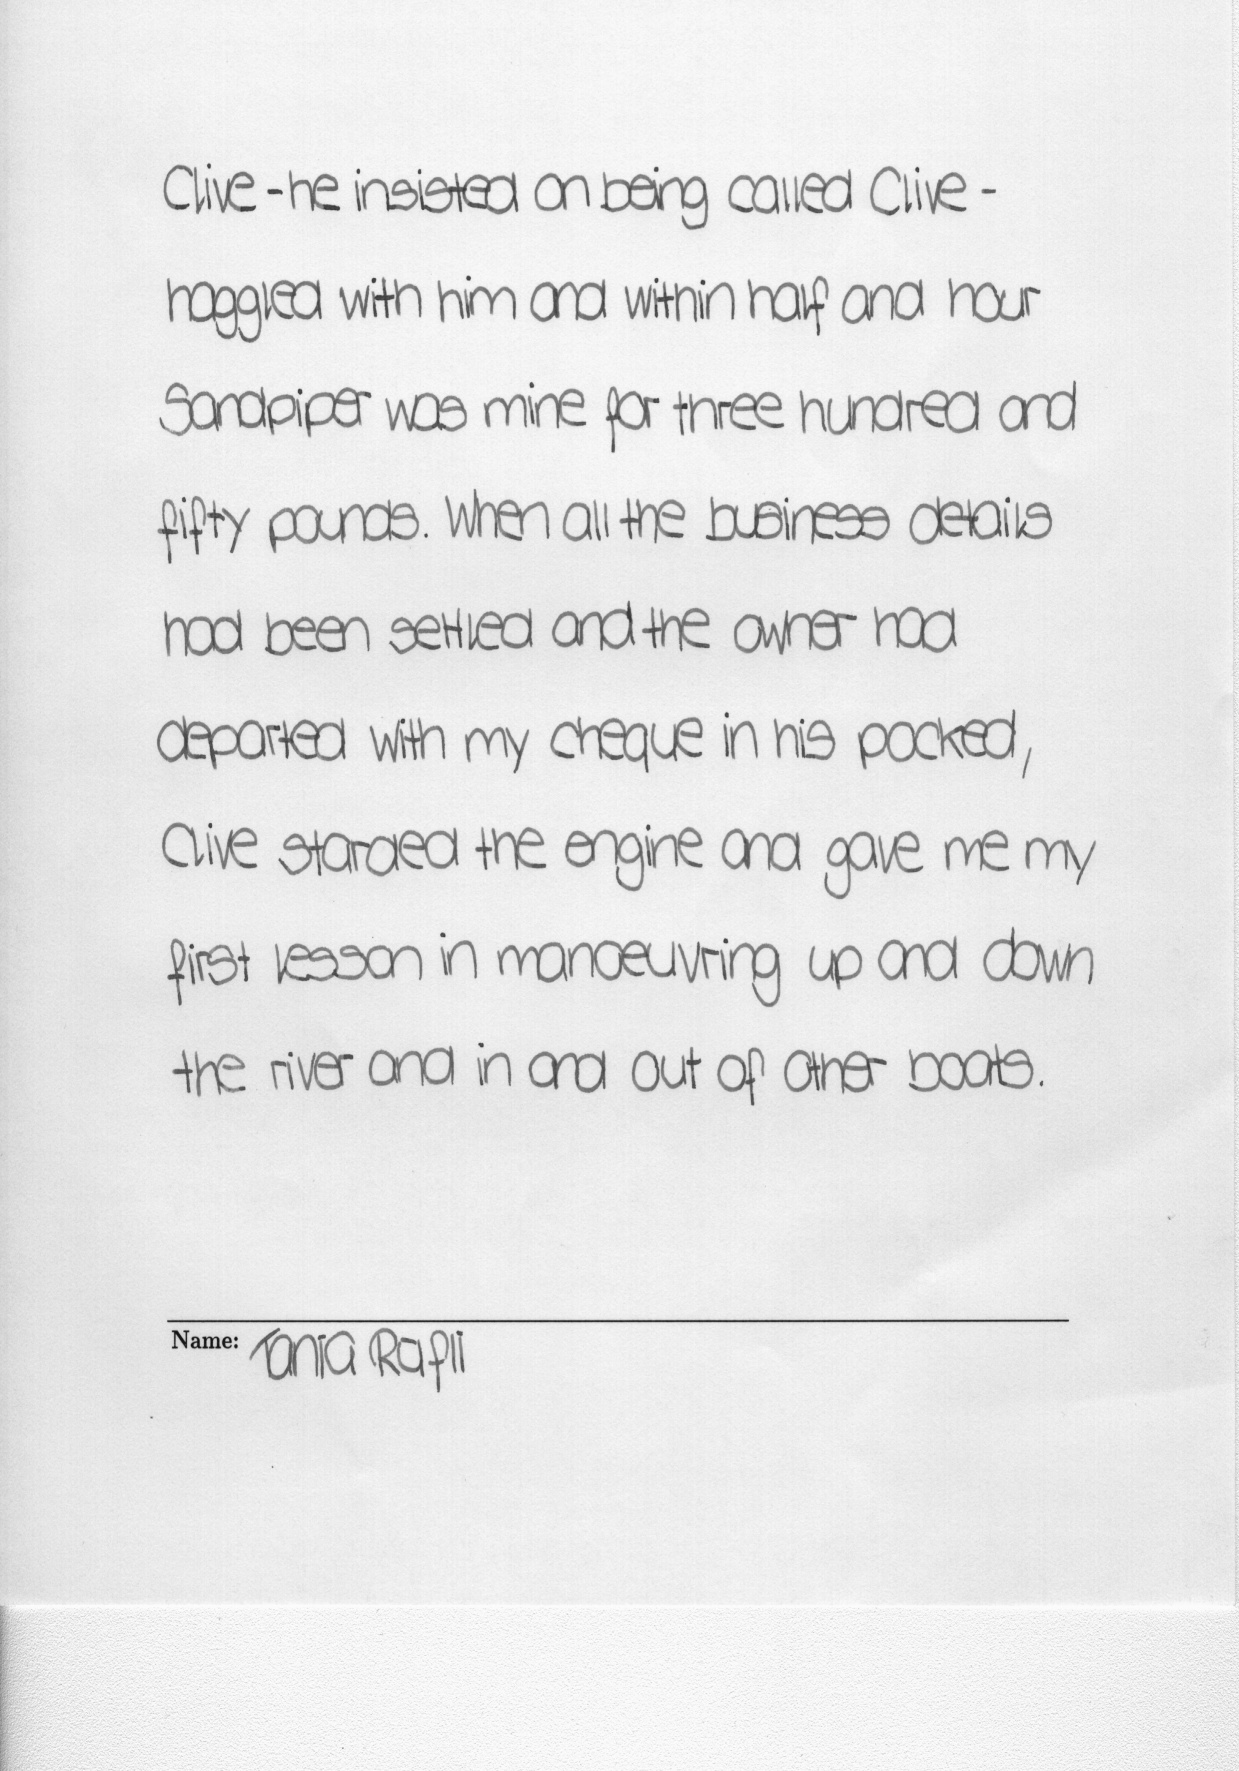 Clive - he insisted on being called Clive -
haggled with him and within half and hour
Sandpiper was mine for three hundred and
fifty pounds. When all the business details
had been settled and the owner had
departed with my cheque in his pocked,
Clive starded the engine and gave me my
first lesson in manoeuvring up and down
the river and in and out of other boats.
Name: Tania Rafii